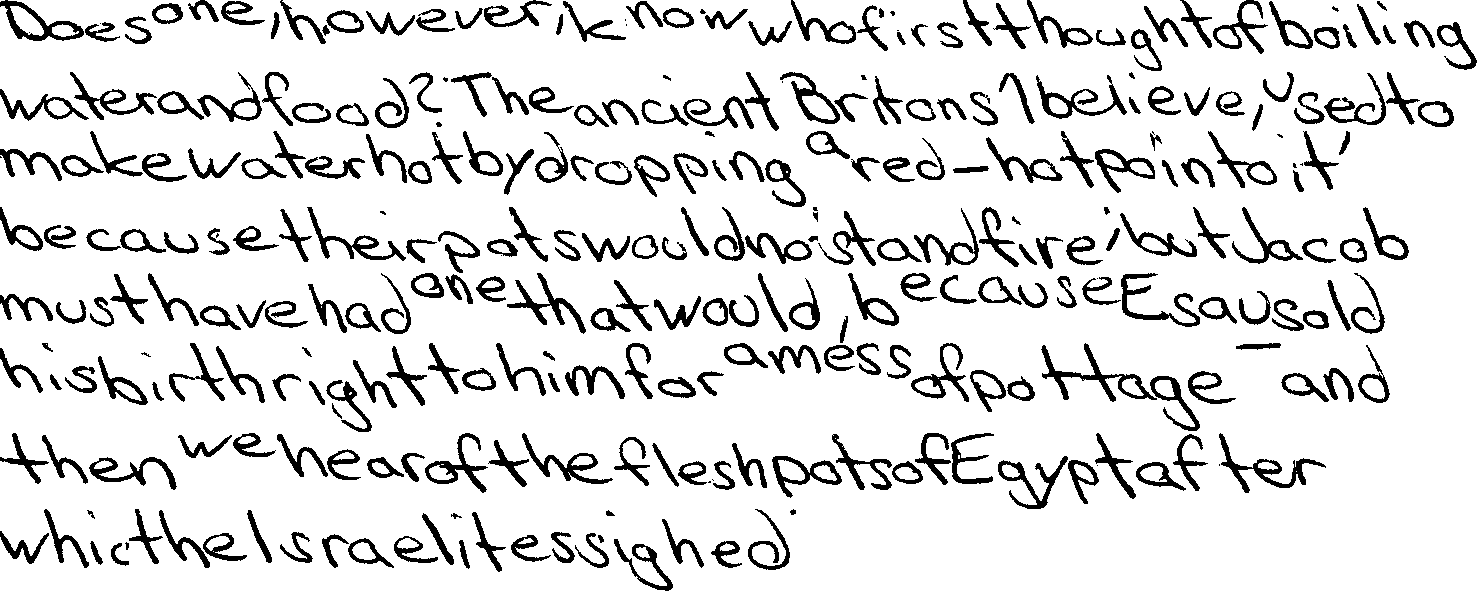 Does one, however, know who first thought of boiling
water and food? The ancient Britons I believe, used to
make water hot by dropping a red-hot pa into it
because their pots would not stand fire, but Jacob
must have had one that would, because Esau sold
his birthright to him for a mess of pottage and
then we hear of the fleshpots of Egypt after
whic the Israelites sighed.